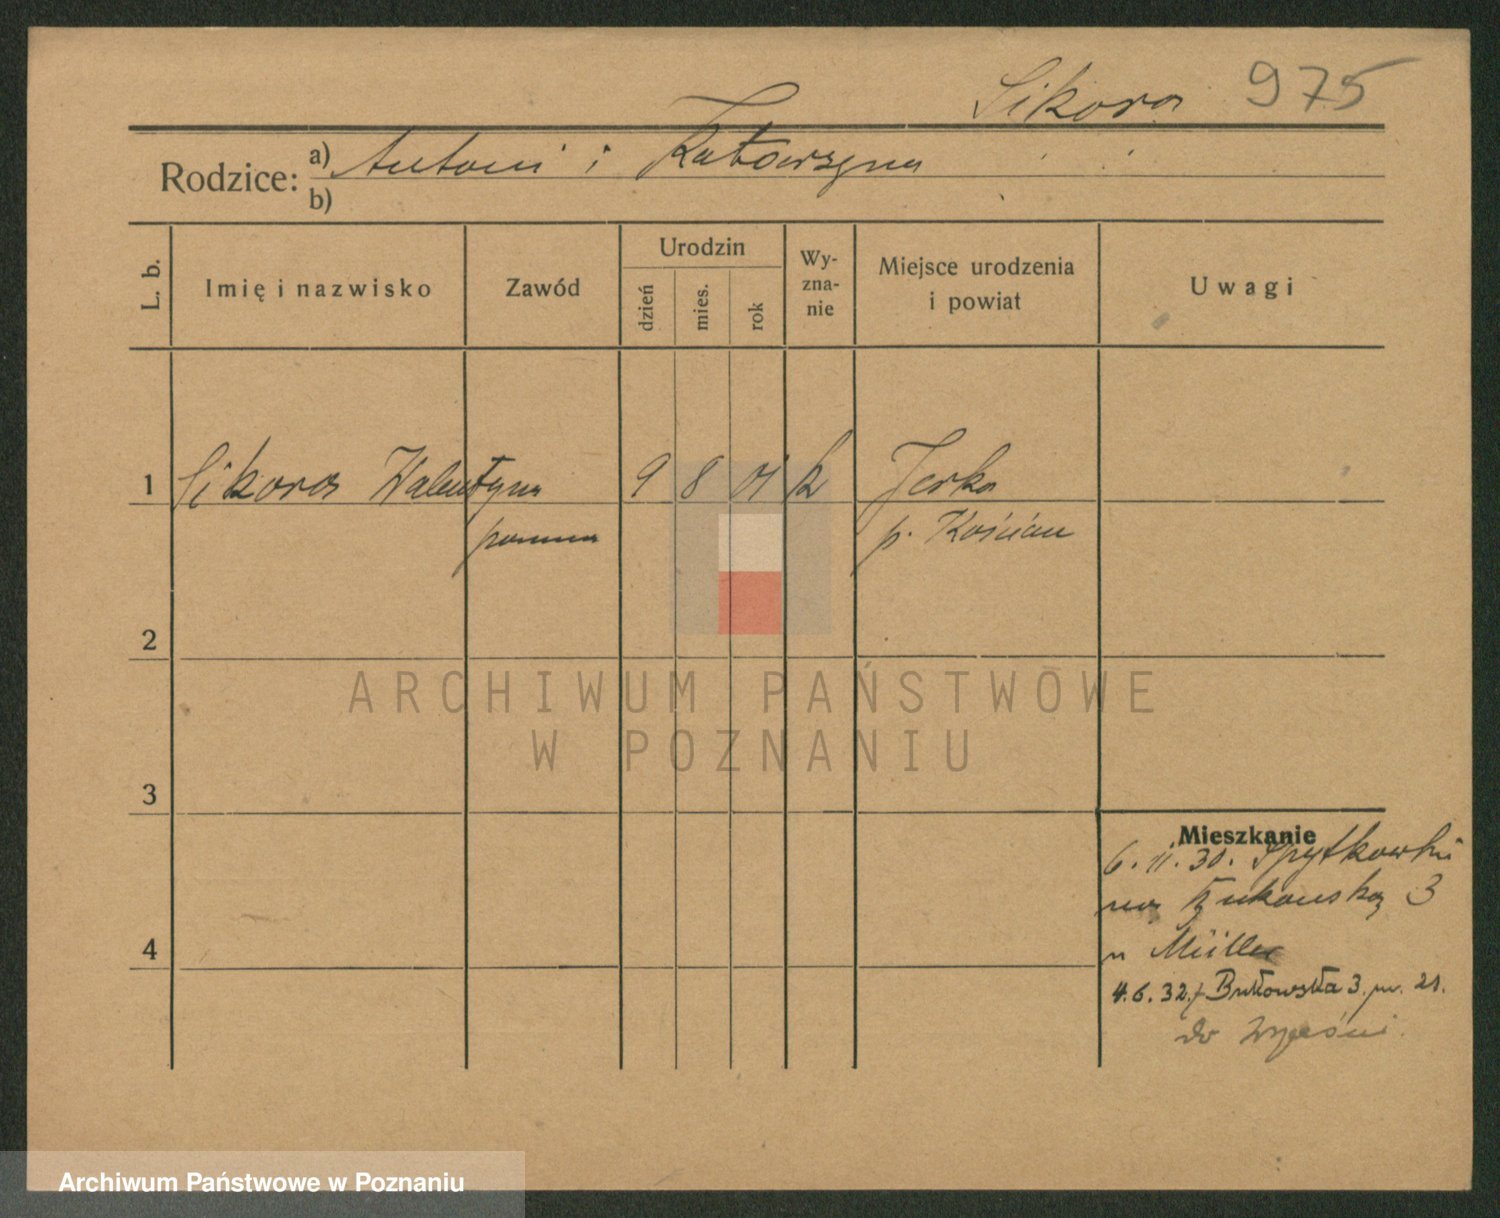 Sikora 975
Rodzice: a) Antoni i Katarzyna
b)
L. b. Imię i nazwisko Zawód Urodzin dzień mies. rok Wyznanie Miejsce urodzenia i powiat Uwagi
1 Sikora Walentyna 9 8 01 k Jerka
panna p. Kościan
2
ARCHIWUM PAŃSTWOWE
W POZNANIU
3
Mieszkanie
6. 11. 30.
na 3
4
u Müller
4. 6. 32. Bukowska 3. 21.
do Wrześni
Archiwum Państwowe w Poznaniu